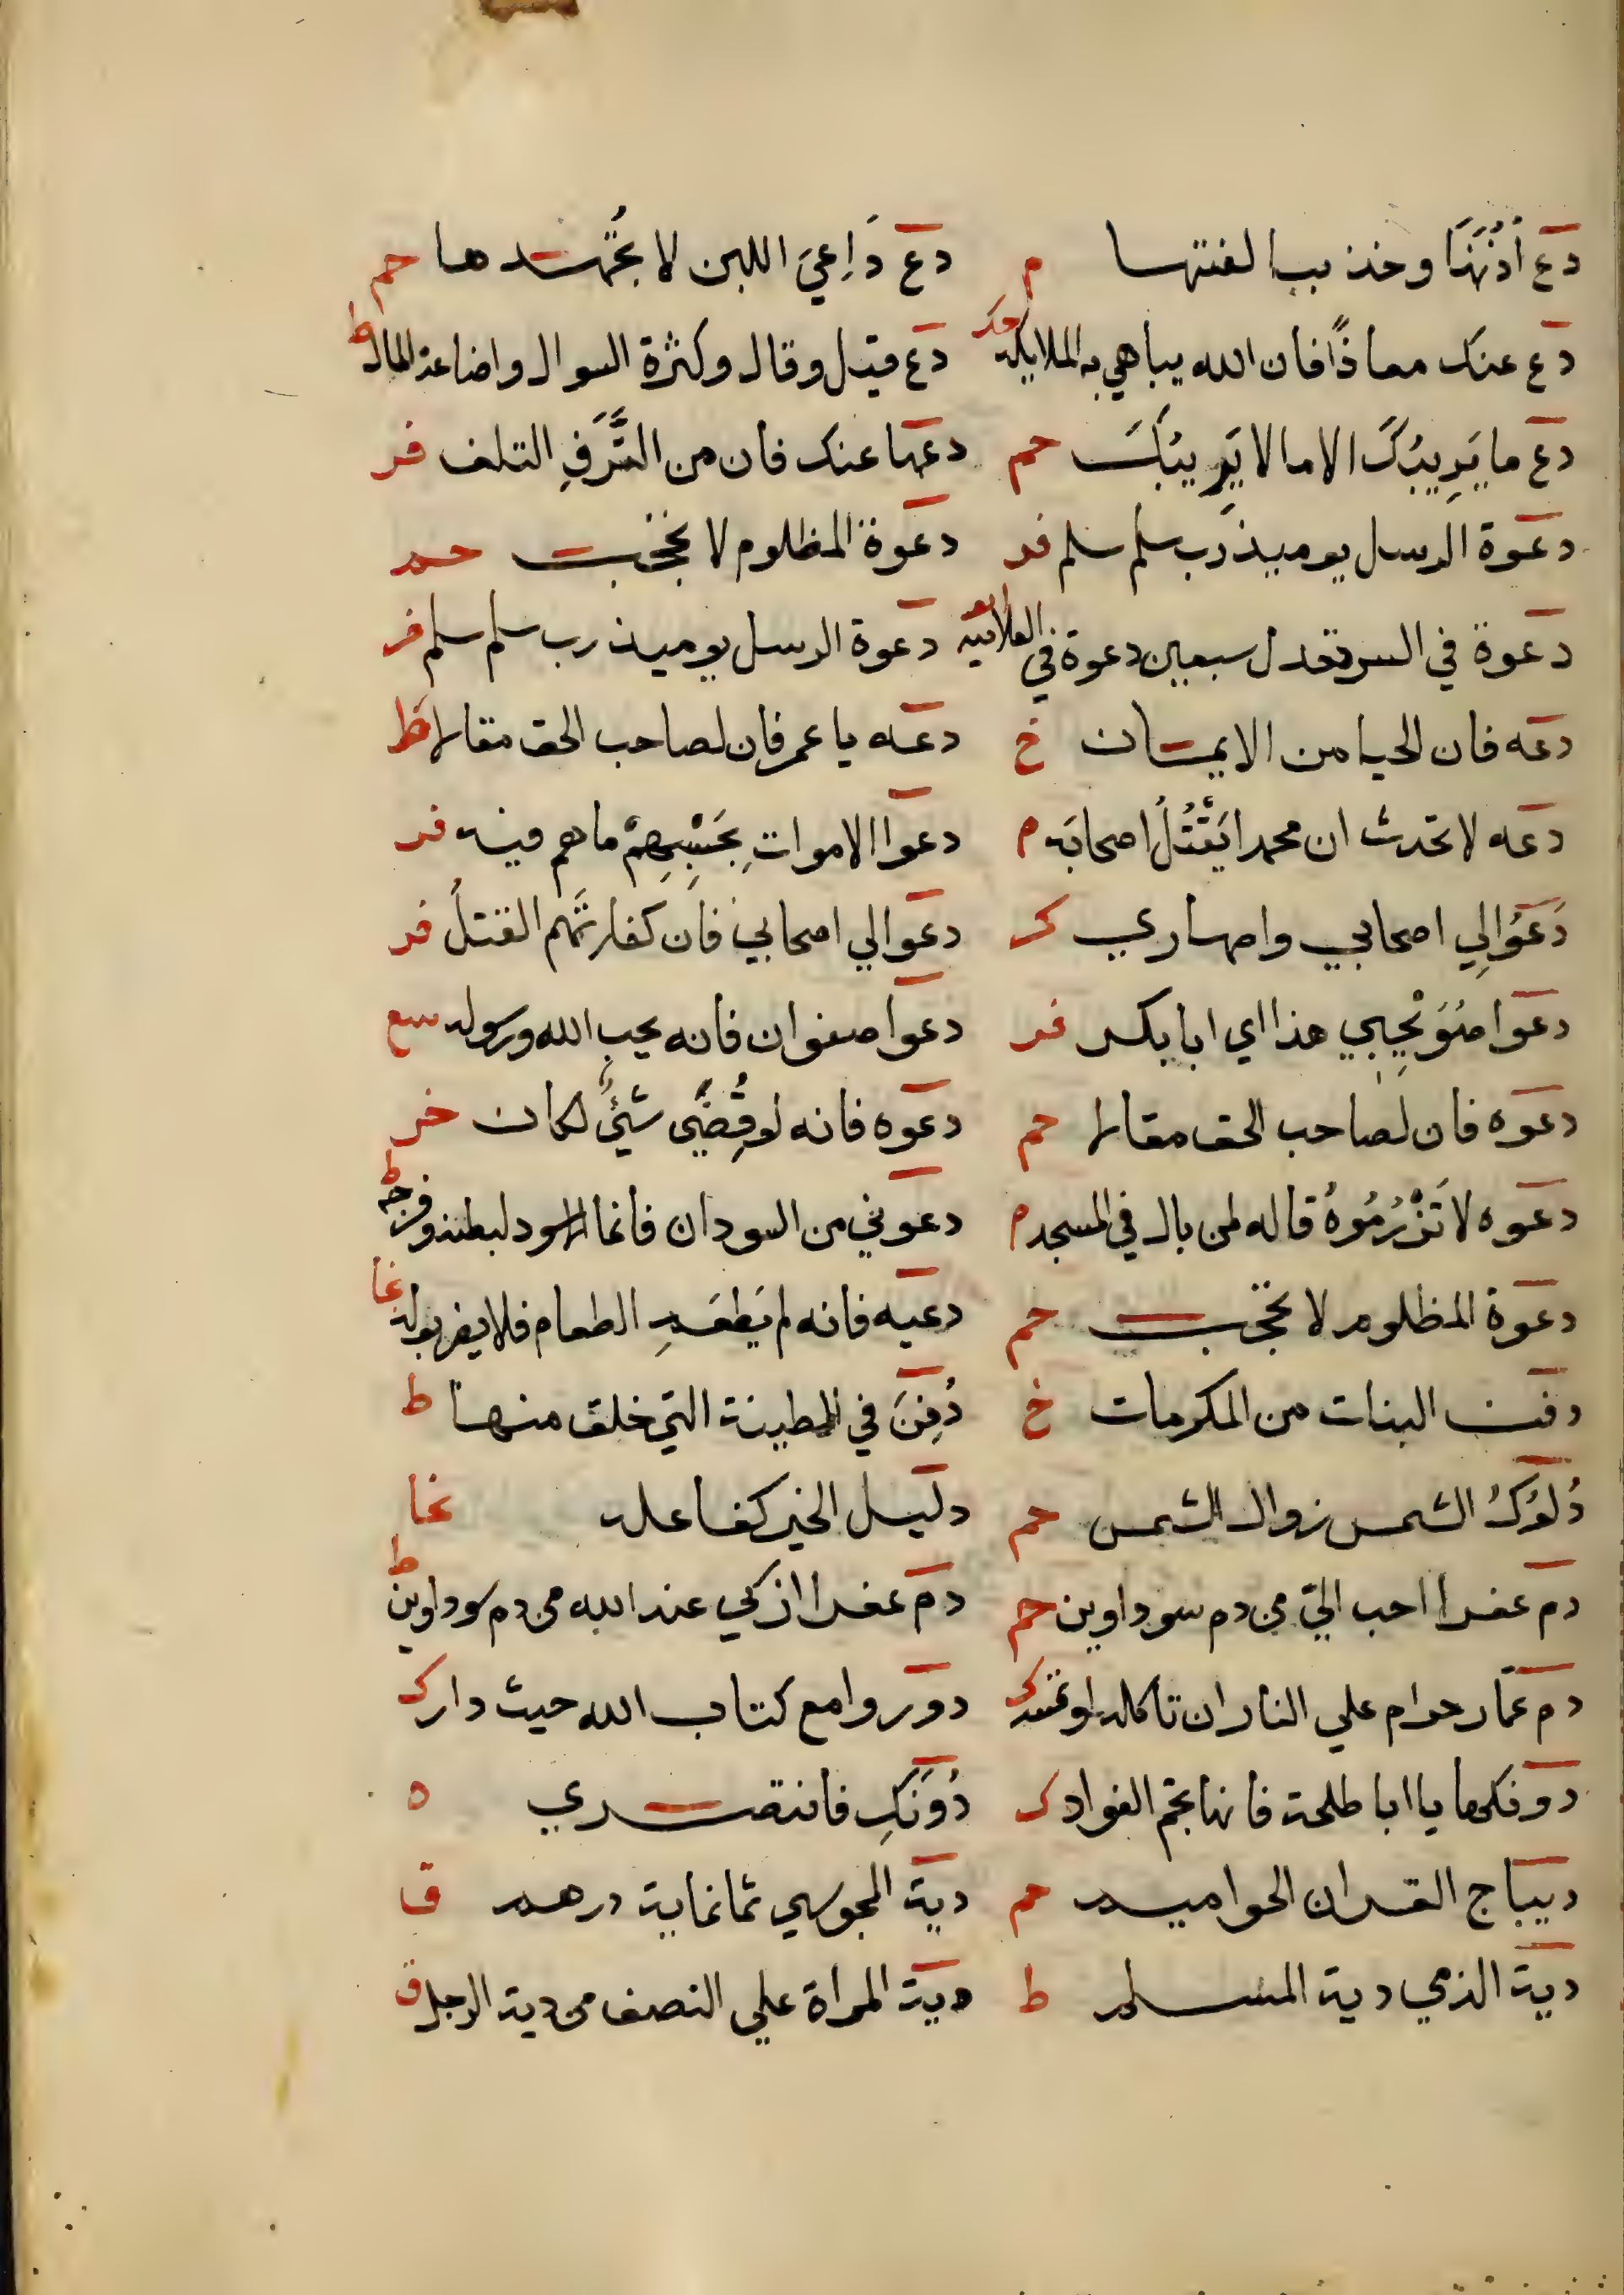 دع أذنها وخذ بالفتها م دع دَاعِيَ اللبن لا تُجهدها حم
دع عنك معاذًا فان الله يباهي به الملايكة حك دع قيل وقال وكثرة السوال واضاعة المال ط
دع ما يَريبُكَ الا ما لا يَرِيبُكَ حم دعها عنك فان من القَرَفِ التلف فر
دعوة الرسل يوميذ رب سلم سلم فر دعوة المظلوم لا تحجب حم
دعوة في السر تعدل سبعين دعوة في العلانيه دعوة الرسل يوميذ رب سلم سلم فر
دعه فان الحيا من الايمان خ دعه يا عمر فان لصاحب الحق مقالا ط
دعه لا تحدث ان محمدا يَقْتُلُ اصحابَه م دعوا الاموات بِحَسْبِهِمْ ما هم فيه فر
دَعَوُا لِي اصحابي واصهاري كر دعوا لي اصحابي فان كفارتَهم القتلُ فر
دعوا صُوَيْحِبي هذا اي ابا بكر فر دعوا صفوان فانه يحب الله ورسوله سع
دعوه فان لصاحب الحق مقالا حم دعوه فانه لو قُضِيَ شيٌ لكان خر
دعوه لا تَزْرُمُوهُ قاله لمن بال في المسجد م دعوني من السودان فانما الاسود لبطنه وفرجه ط
دعوة المظلوم لا تحجب حم دعيه فانه لم يَطعَمِ الطعام فلا يضر بوله نجا
دفن البنات من المكرمات خ دُفِنَ في الطينة التي خلق منها ط
دُلوكُ الشمس زوال الشمس حم دليل الخير كفاعله نجا
دم عفرا احب اليّ من دم سوداوين حم دم عفرا ازكي عند الله من دم سوداوين ط
دم عمّار حرام علي النار ان تاكله او تمسه ك دوروا مع كتاب الله حيث دار ك
دونكها يا ابا طلحة فانها تجم الفواد ك دُونَكِ فانتصري ه
ديباج القران الحواميم حم دية المجوسي ثمانماية درهم ق
دية الذمي دية المسلم ط دية المراة علي النصف من دية الرجل ق